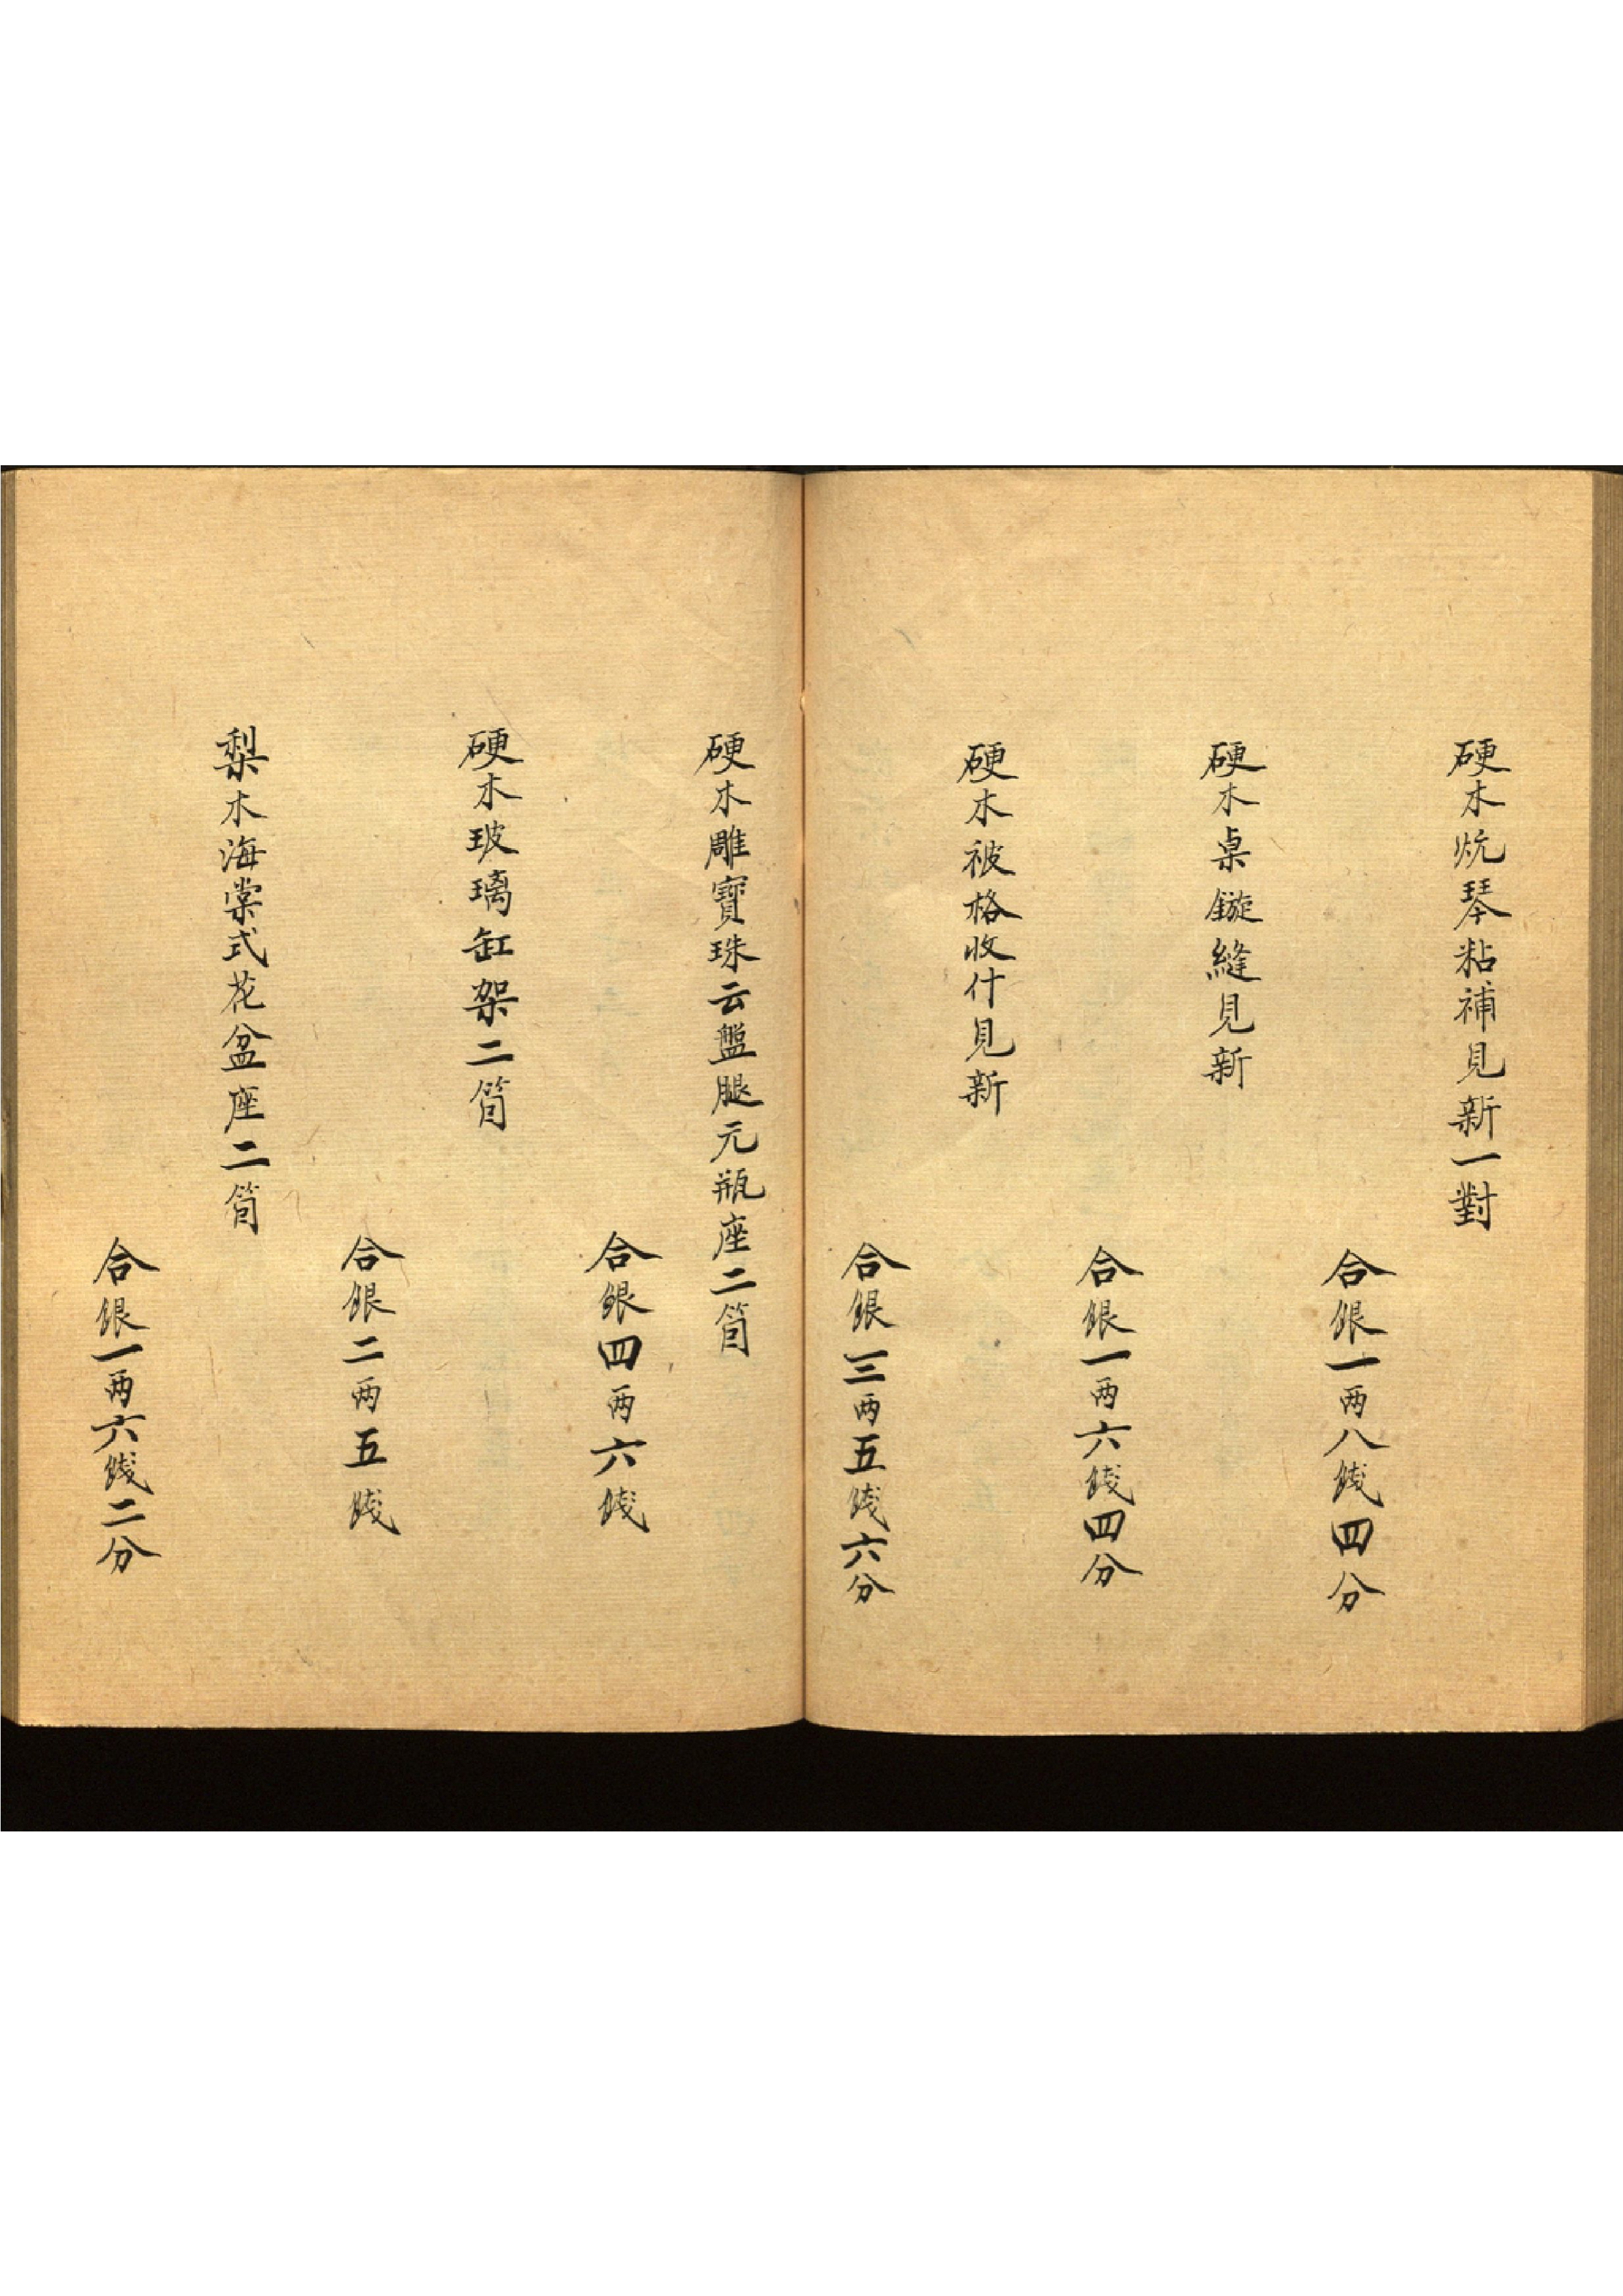 硬木炕琴粘補見新一對
合銀一两八錢四分
硬木桌鏇縫見新
合銀一两六錢四分
硬木被格收什見新
合銀三两五錢六分
硬木雕寶珠云盤腿元瓶座二箇
合銀四两六錢
硬木玻璃缸架二箇
合銀二两五錢
梨木海棠式花盆座二箇
合銀一两六錢二分